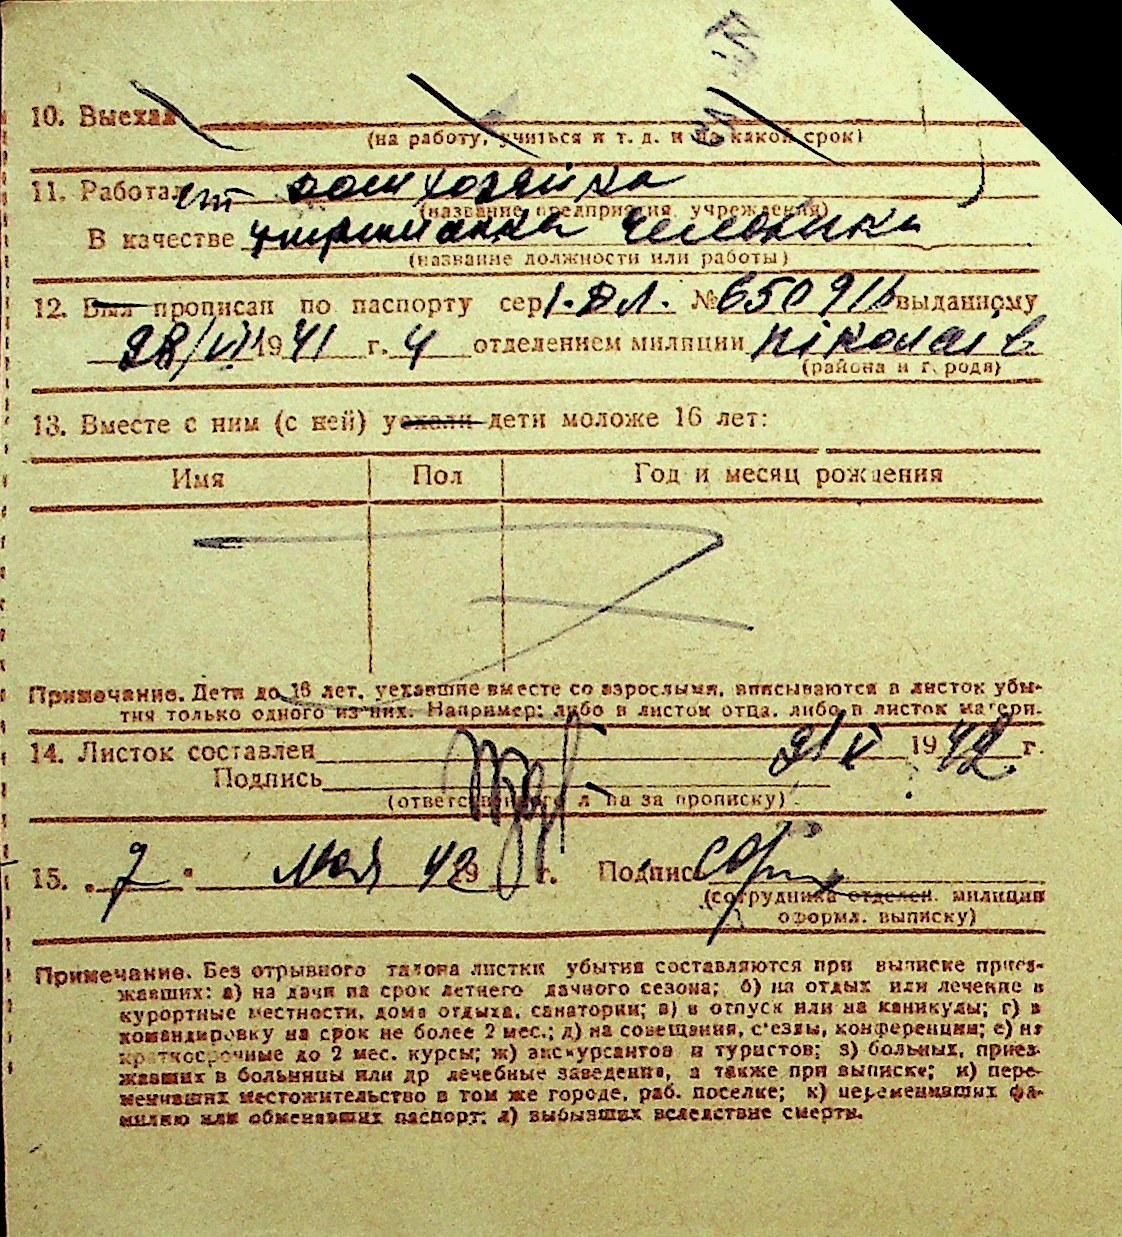 10. Выехал
(на работу, учиться и т. д. и на какой срок)
11. Работал домхозяйка
(название предприятия, учреждения)
В качестве
(название должности или работы)
12. Был прописан по паспорту сер. № 650916 выданному
28/VI 1941 г. 4 отделением милиции Ніколаів
(района и города)
13. Вместе с ним (с ней) уехали дети моложе 16 лет:
Имя Пол Год и месяц рождения
Примечание. Дети до 16 лет, уехавшие вместе со взрослыми, вписываются в листок убы-
тия только одного из них. Например: либо в листок отца, либо в листок матери.
14. Листок составлен 21 V 1942 г.
Подпись
(ответственного лица за прописку)
15. „7" мая 1942 г. Подпись
(сотрудника отделен. милиции
оформл. выписку)
Примечание. Без отрывного талона листки убытия составляются при выписке приез-
жавших: а) на дачи на срок летнего дачного сезона; б) на отдых или лечение в
курортные местности, дома отдыха, санатории; в) в отпуск или на каникулы; г) в
командировку на срок не более 2 мес.; д) на совещания, с'езды, конференции; е) на
краткосрочные до 2 мес. курсы; ж) экскурсантов и туристов; з) больных, приез-
жавших в больницы или др лечебные заведения, а также при выписке; и) пере-
менивших местожительство в том же городе, раб. поселке; к) переменивших фа-
милию или обменявших паспорт; л) выбывших вследствие смерти.